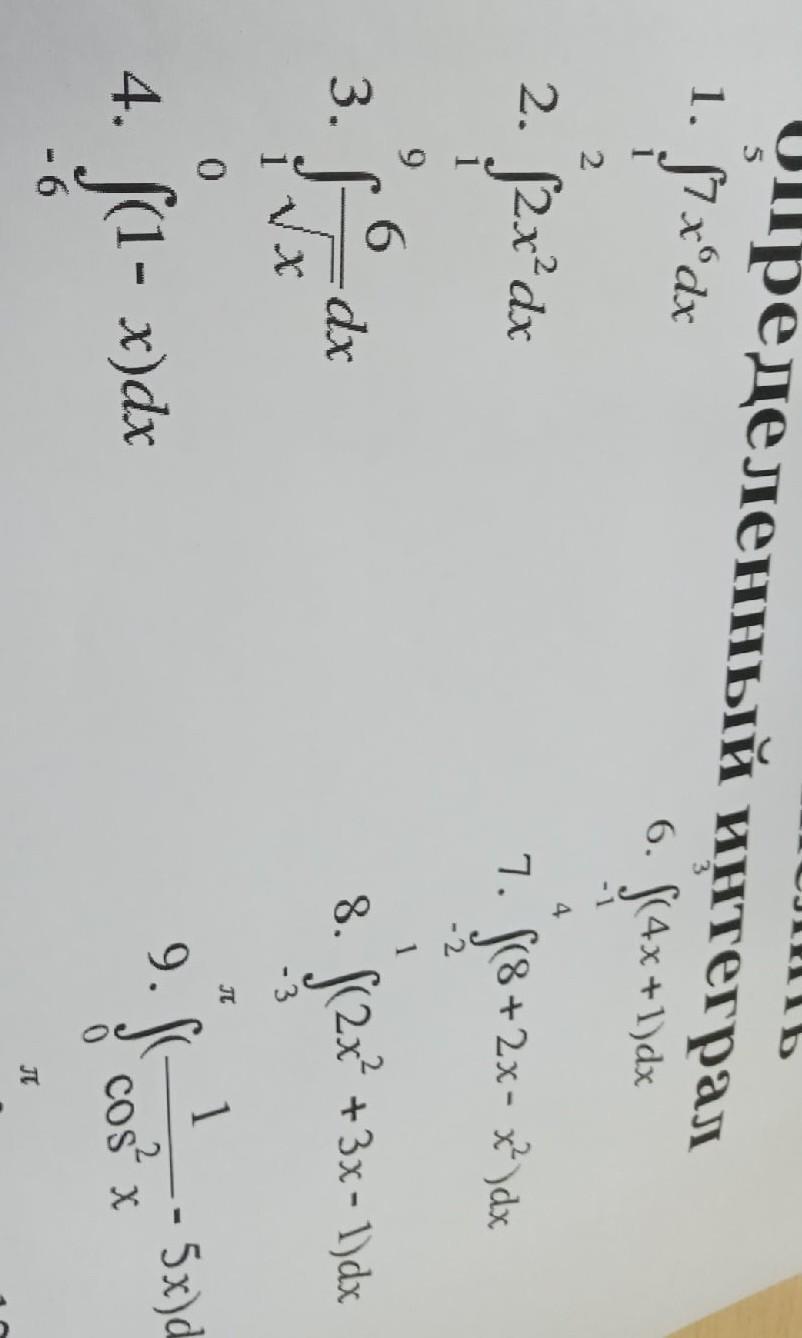 определенный интеграл
1. ∫₁⁵ 7x⁶dx
2. ∫₁² 2x²dx
3. ∫₁⁹ 6/√x dx
4. ∫₋₆⁰ (1 - x)dx
6. ∫₋₁³ (4x + 1)dx
7. ∫₋₂⁴ (8 + 2x - x²)dx
8. ∫₋₃¹ (2x² + 3x - 1)dx
9. ∫₀^π (1/cos² x - 5x)d
π